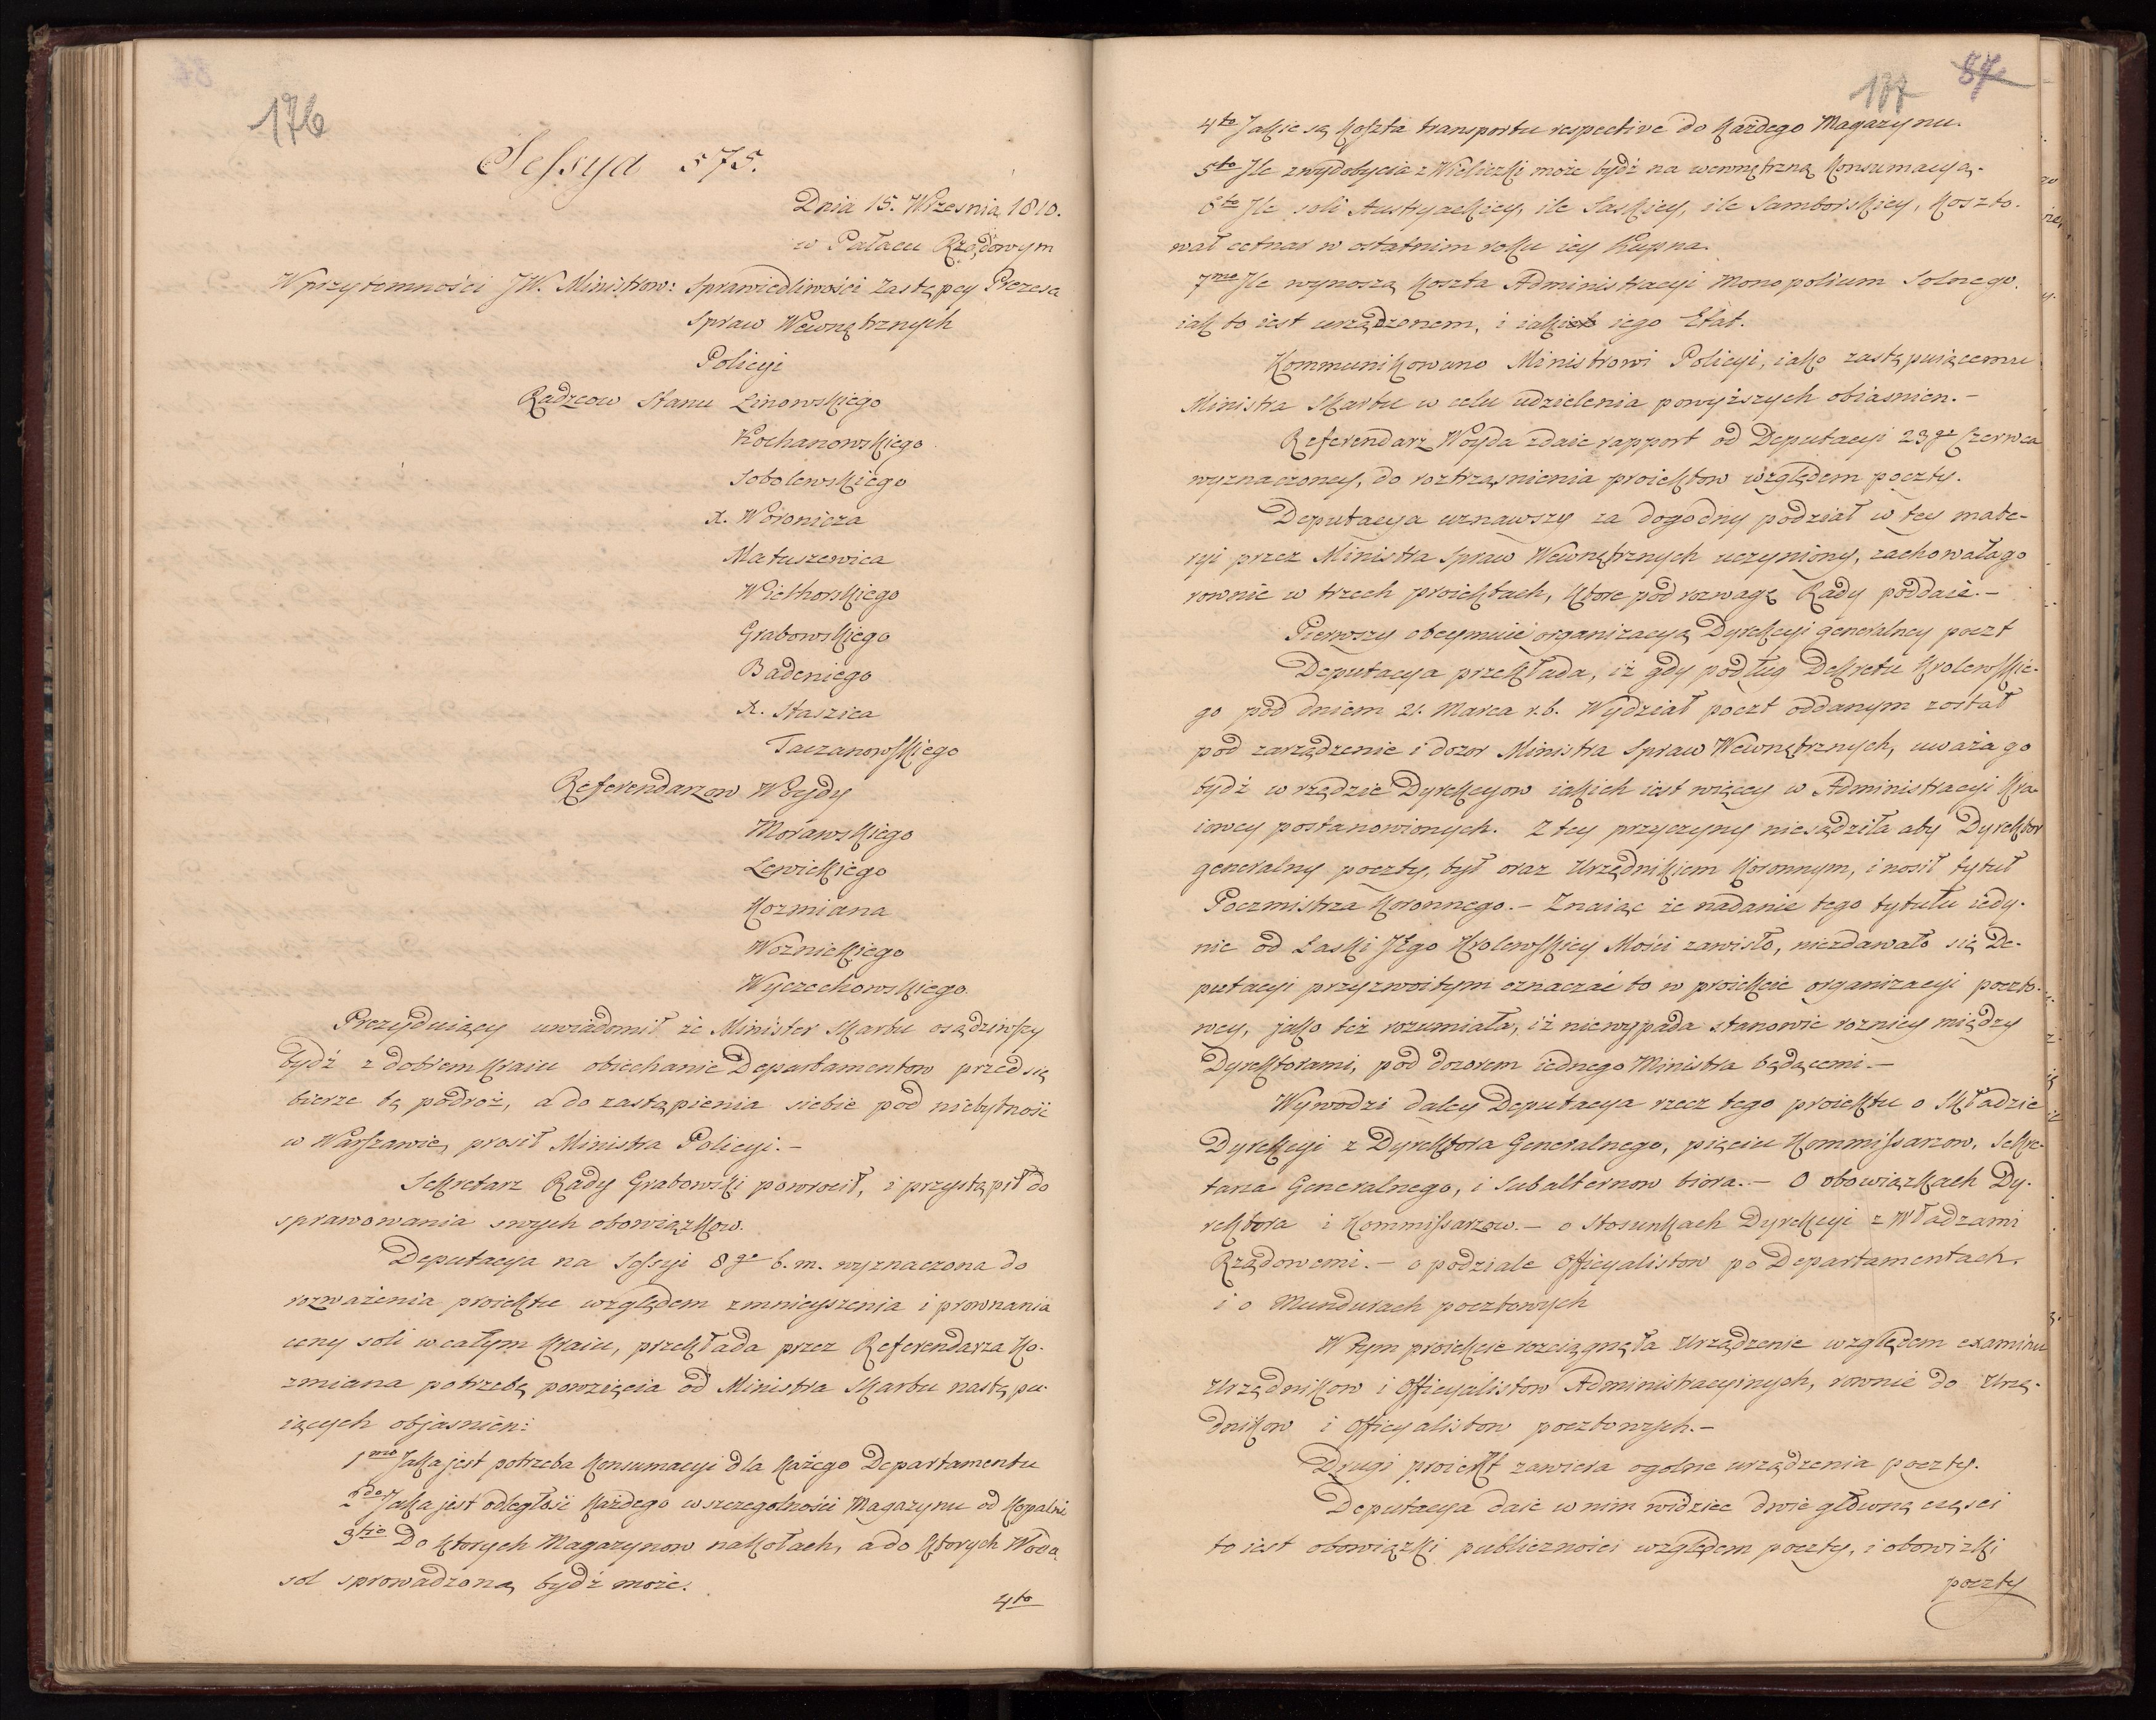 176
Sessya 575.
Dnia 15. Wrzesnia 1810.
w Pałacu Rządowym
W przytomności JW. Ministrow: Sprawiedliwości Zastępcy Prezesa
Spraw Wewnętrznych
Policyi
Radzcow Stanu Linowskiego
Kochanowskiego
Sobolewskiego
X. Woronicza
Matuszewica
Wielhorskiego
Grabowskiego
Badeniego
X. Staszica
Taczanowskiego
Referendarzow Woydy
Morawskiego
Lewickiego
Kozmiana
Woznickiego
Wyczechowskiego.
Prezyduiący uwiadomił że Minister Skarbu osądziwszy
bydź z dobrem Kraiu obiechanie Departamentow przedsię
bierze tę podroż, a do zastąpienia siebie pod niebytność
w Warszawie, prosił Ministra Policyi.-
Sekretarz Rady Grabowski powrocił, i przystąpił do
sprawowania swych obowiązkow.
Deputacya na Sessyi 8go b. m. wyznaczona do
rozważenia proiektu względem zmnieyszenia i prownania
ceny soli w całym Kraiu, przekłada przez Referendarza Ko-
zmiana potrzebę powzięcia od Ministra Skarbu nastepu-
iących objasnien:
1mo Jaka jest potrzeba Konsumacyi dla Każego Departamentu
2do Jaka jest odległość Każdego w szczegolności Magazynu od Kopalni
3tio Do Ktorych Magazynow na Kołach, a do Ktorych Wodą
sol sprowadzoną bydź może.
4to
177 87
4to Jakie są Koszta transportu respective do Każdego Magazynu.
5to Jle z wydobycia z Wieliczki może bydź na wewnętrzną Konsumacyą.
6to Jle soli Austryackiey, ile Saskiey, ile Samborskiey, Koszto-
wał cetnar w ostatnim roku iey Kupna.
7mo Jle wynoszą Koszta Administracyi Monopolium Solnego.
iak to iest urządzonem, i iakie iego Etat.
Kommunikowano Ministrowi Policyi, iako zastępuiącemu
Ministra Skarbu w celu udzielenia powyższych obiasnien.-
Referendarz Woyda zdaie rapport od Deputacyi 23go Czerwca
wyznaczoney, do roztrząsnienia proiektow względem poczty.
Deputacya uznawszy za dogodny podział w tey mate-
ryi przez Ministra Spraw Wewnętrznych uczyniony, zachowała go
rownie w trzech proiektach, Ktore pod rozwagę Rady poddaie.-
Pierwszy obeymuie organizacyą Dyrekcyi generalney poczt
Deputacya przekłada, iż gdy podług Dekretu Krolewskie-
go pod dniem 21. Marca r. b. Wydział poczt oddanym został
pod zarządzenie i dozor Ministra Spraw Wewnętrznych, uważa go
bydź w rzędzie Dyrekcyow iakich iest więcey w Administracyi Kra-
iowey postanowionych. Z tey przyczyny niesądziła aby Dyrektor
generalny poczty, był oraz Urzędnikiem Koronnym, i nosił tytuł
Poczmistrza Koronnego.- Znaiąc że nadanie tego tytułu iedy-
nie od Łaski JEgo Krolewskiey Mości zawisło, niezdawało się De-
putacyi przyzwoitym oznaczać to w proiekcie organizacyi poczto-
wey, jako też rozumiała, iż niewypada stanowic roznicy między
Dyrektorami, pod dozorem iednego Ministra będącemi.-
Wywodzi daley Deputacya rzecz tego proiektu o Składzie
Dyrekcyi z Dyrektora Generalnego, pięciu Kommissarzow, Sekre-
tarza Generalnego, i Subalternow biora.- O obowiązkach Dy-
rektora i Kommissarzow.- o Stosunkach Dyrekcyi z Władzami
Rządowemi.- o podziale Officyalistow po Departamentach.
i o Mundurach pocztowych
W tym proiekcie rozciągnęła Urządzenie względem examinu
Urzędnikow i Officyalistow Administracyinych, rownie do Urzę-
dnikow i Officyalistow pocztowych.-
Drugi proiekt zawiera ogolne urządzenia poczty.
Deputacya daie w nim widziec dwie głowne częsci
to iest obowiązki publiczności względem poczty, i obowizki
poczty